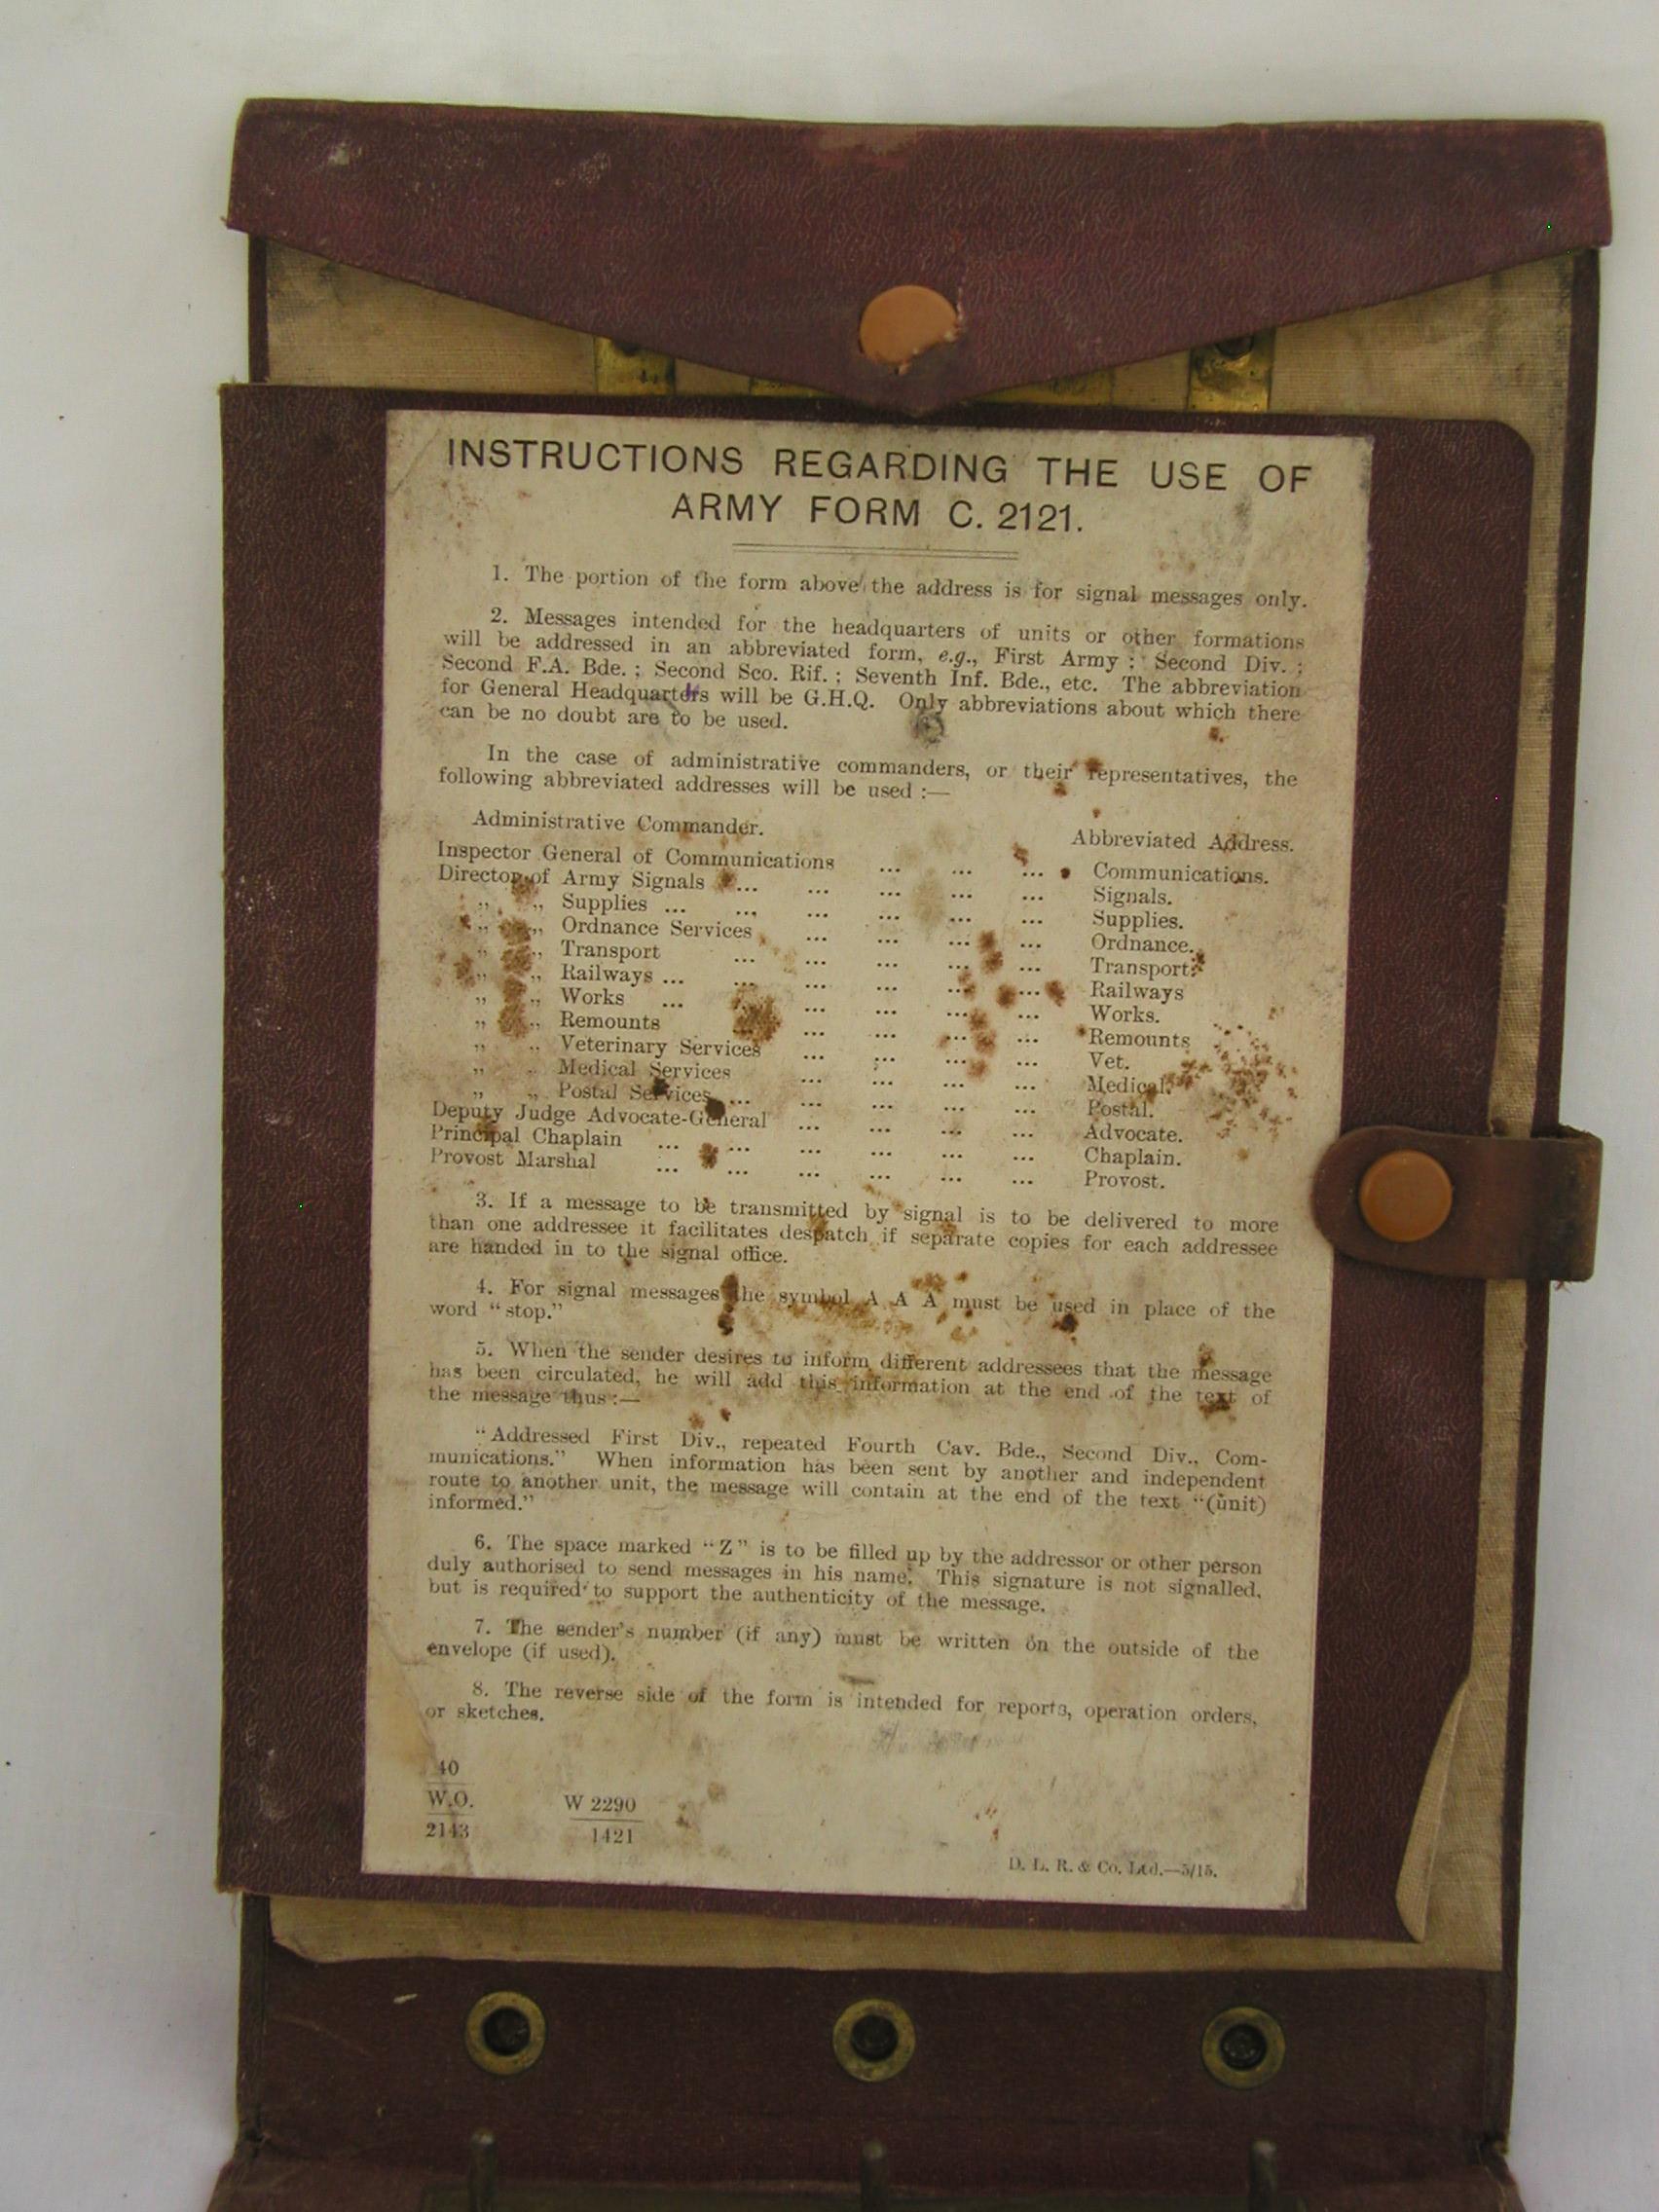 INSTRUCTIONS REGARDING THE USE OF
ARMY FORM C. 2121.
1. The portion of the form above the address is for signal messages only.
2. Messages intended for the headquarters of units or other formations
will be addressed in an abbreviated form, e.g., First Army ; Second Div. ;
Second F.A. Bde. ; Second Sco. Rif. ; Seventh Inf. Bde., etc. The abbreviation
for General Headquarters will be G.H.Q. Only abbreviations about which there
can be no doubt are to be used.
In the case of administrative commanders, or their representatives, the
following abbreviated addresses will be used :—
Administrative Commander. Abbreviated Address.
Inspector General of Communications ... ... ... Communications.
Director of Army Signals ... ... ... ... ... Signals.
„ „ Supplies ... ... ... ... ... ... Supplies.
„ „ Ordnance Services ... ... ... ... Ordnance.
„ „ Transport ... ... ... ... ... Transport.
„ „ Railways ... ... ... ... ... ... Railways
„ „ Works ... ... ... ... ... ... Works.
„ „ Remounts ... ... ... ... Remounts
„ „ Veterinary Services ... ... ... ... Vet.
„ „ Medical Services ... ... ... ... Medical.
„ „ Postal Services ... ... ... ... ... Postal.
Deputy Judge Advocate-General ... ... ... ... Advocate.
Principal Chaplain ... ... ... ... ... ... Chaplain.
Provost Marshal ... ... ... ... ... ... Provost.
3. If a message to be transmitted by signal is to be delivered to more
than one addressee it facilitates despatch if separate copies for each addressee
are handed in to the signal office.
4. For signal messages the symbol A A A must be used in place of the
word “stop.”
5. When the sender desires to inform different addressees that the message
has been circulated, he will add this information at the end of the text of
the message thus :—
“Addressed First Div., repeated Fourth Cav. Bde., Second Div., Com-
munications.” When information has been sent by another and independent
route to another unit, the message will contain at the end of the text “(unit)
informed.”
6. The space marked “Z” is to be filled up by the addressor or other person
duly authorised to send messages in his name. This signature is not signalled,
but is required to support the authenticity of the message.
7. The sender's number (if any) must be written on the outside of the
envelope (if used).
8. The reverse side of the form is intended for reports, operation orders,
or sketches.
40
W.O.
2143
W 2290
1421
D. L. R. & Co. Ltd.—5/15.